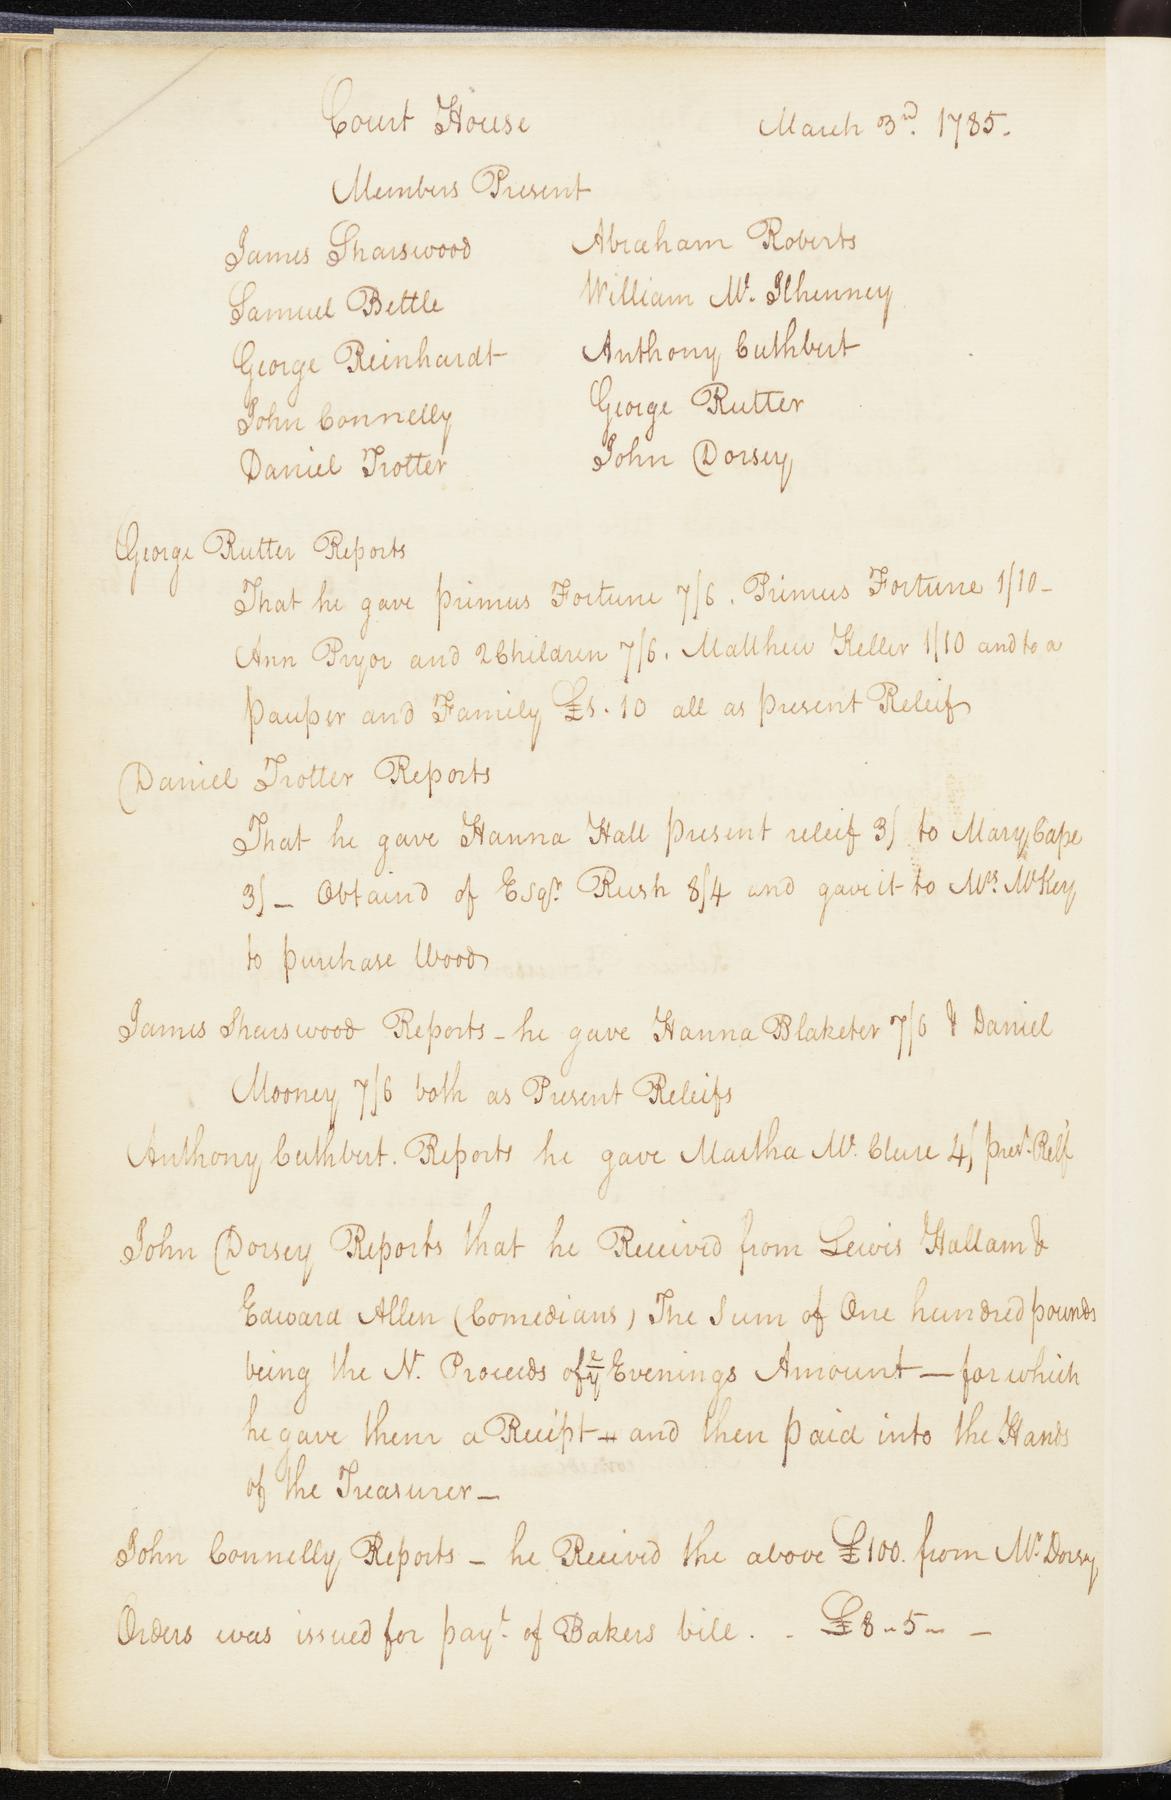 Court House March 3rd. 1785.
Members Present
James Sharswood Abraham Roberts
Samuel Bettle William Mc. Ilhenney
George Reinhardt Anthony Cuthbert
John Connelly George Rutter
Daniel Trotter John Dorsey
George Rutter Reports
That he gave primus Fortune 7/6. Primus Fortune 1/10 -
Ann Pryor and 2 Children 7/6. Matthew Keller 1/10 and to a
pauper and Family £s. 10 all as present Releif
Daniel Trotter Reports
That he gave Hanna Hall present releif 3/ to Mary Cape
3/ - Obtaind of Esqr. Rush 8/4 and gave it to Mrs. McKey
to purchase Wood
James Sharswood Reports - he gave Hanna Blaketer 7/6 & Daniel
Mooney 7/6 both as Present Releifs
Anthony Cuthbert. Reports he gave Martha Mc. Clure 4/ prest. Relf
John Dorsey Reports that he Received from Lewis Hallam &
Edward Allen (Comedians) The Sum of One hundred pounds
being the N. Proceeds of ye Evenings Amount — for which
he gave them a Receipt - and then paid into the Hands
of the Treasurer —
John Connelly Reports - he Received the above £100. from Mr Dorsey
Orders was issued for payt. of Bakers bill. . £8 - 5 - -